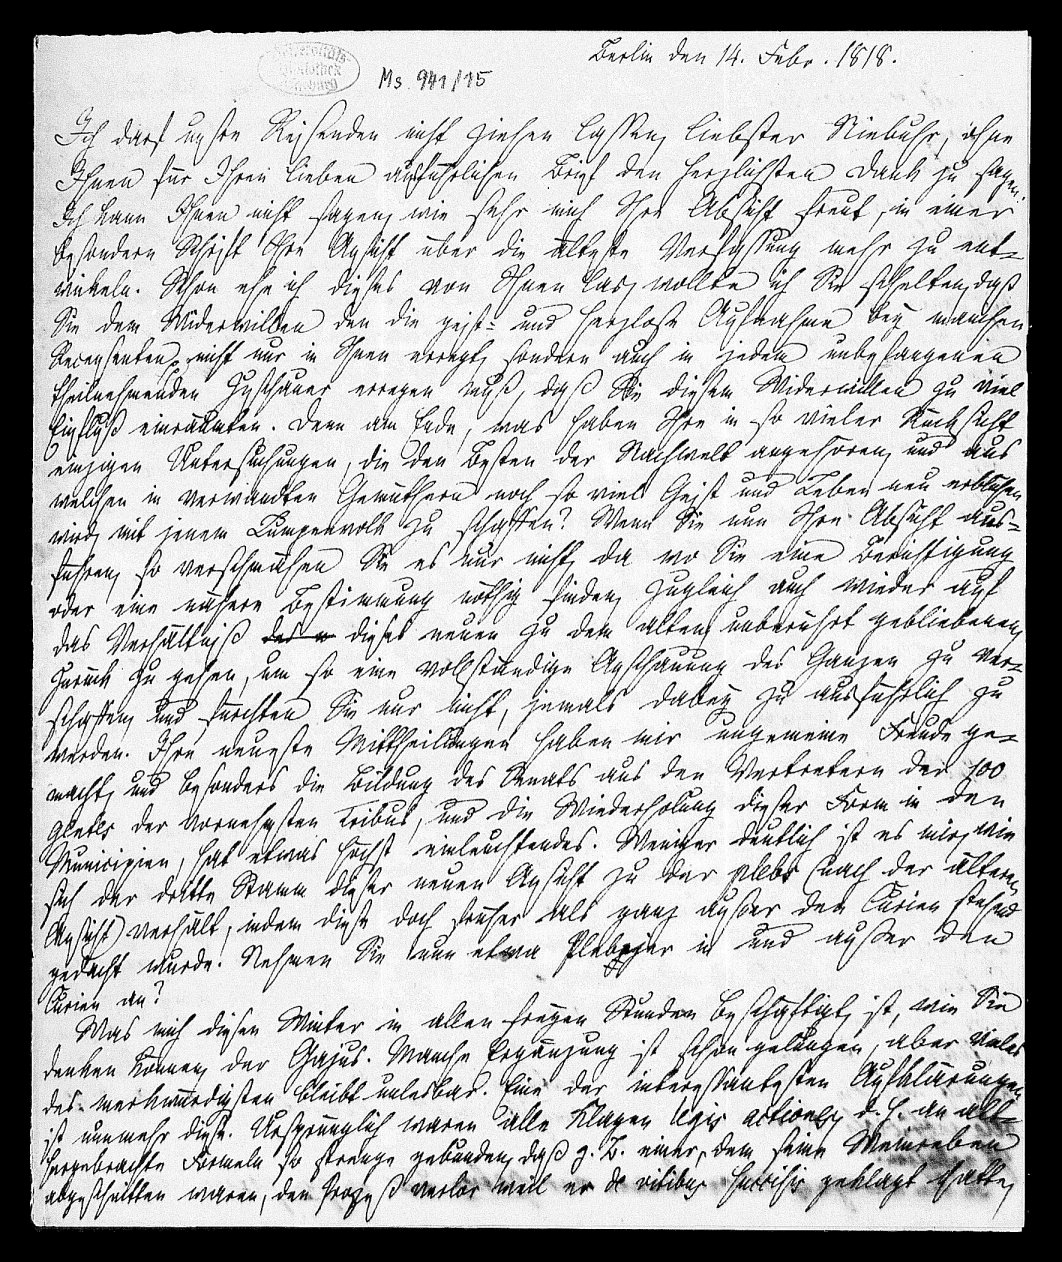 Berlin den 14. Febr. 1818.
Ms. 941/15
Ich darf unsre Reisenden nicht ziehen lassen, liebster Niebuhr, ohne
Ihnen für Ihren lieben ausführlichen Brief den herzlichsten Dank zu sagen.
Ich kann Ihnen nicht sagen, wie sehr mich Ihre Absicht freut, in einer
besondern Schrift Ihre Ansicht über die älteste Verfassung mehr zu ent-
wickeln. Schon ehe ich dieses von Ihnen las, wollte ich Sie schelten, daß
Sie dem Widerwillen den die geist- und herzlose Aufnahme bey manchen
Recensenten nicht nur in Ihnen erregt, sondern auch in jedem unbefangenen
theilnehmenden Zuschauer erregen muß, daß Sie diesem Widerwillen zu viel
Einfluß einräumten. Denn am Ende, was haben Ihre in so vieler Rücksicht
einzigen Untersuchungen, die den Besten der Nachwelt angehören, und aus
welchen in verwandten Gemüthern noch so viel Geist und Leben neu erblühen
wird, mit jenem Lumpenvolk zu schaffen? Wenn Sie nun Ihre Absicht aus-
führen, so verschmähen Sie es nur nicht, da wo Sie eine Berichtigung
oder eine nähere Bestimmung nöthig finden, zugleich auch wieder auf
das Verhältniß dieses neuen zu dem alten, unberührt gebliebenen,
zurück zu gehen, um so eine vollständige Anschauung des Ganzen zu ver-
schaffen, und fürchten Sie nur nicht, jemals dabey zu ausführlich zu
werden. Ihre neueste Mittheilungen haben mir ungemeine Freude ge-
macht, und besonders die Bildung des Senats aus den Vertretern der 100
gentes der vornehmsten Tribus, und die Wiederholung dieser Form in den
Municipien, hat etwas höchst einleuchtendes. Weniger deutlich ist es mir, wie
sich der dritte Stamm dieser neuen Ansicht zu der plebs (nach der älteren
Ansicht) verhält, indem diese doch früher als ganz außer den Curien stehend
gedacht wurde. Nehmen Sie nun etwa Plebejer in und außer den
Curien an?
Was mich diesen Winter in allen freyen Stunden beschäftigt, ist, wie Sie
denken können, der Gajus. Manche Ergänzung ist schon gelungen, aber vieles
des merkwürdigsten bleibt unlesbar. Eine der interessantesten Aufklärungen
ist nunmehr diese. Ursprünglich waren alle Klagen legis actiones, d. h. an alt-
hergebrachte Formeln so strenge gebunden, daß z. B. einer, dem seine Weinreben
abgeschnitten waren, den Prozeß verlor weil er de vitibus succisis geklagt hatte,